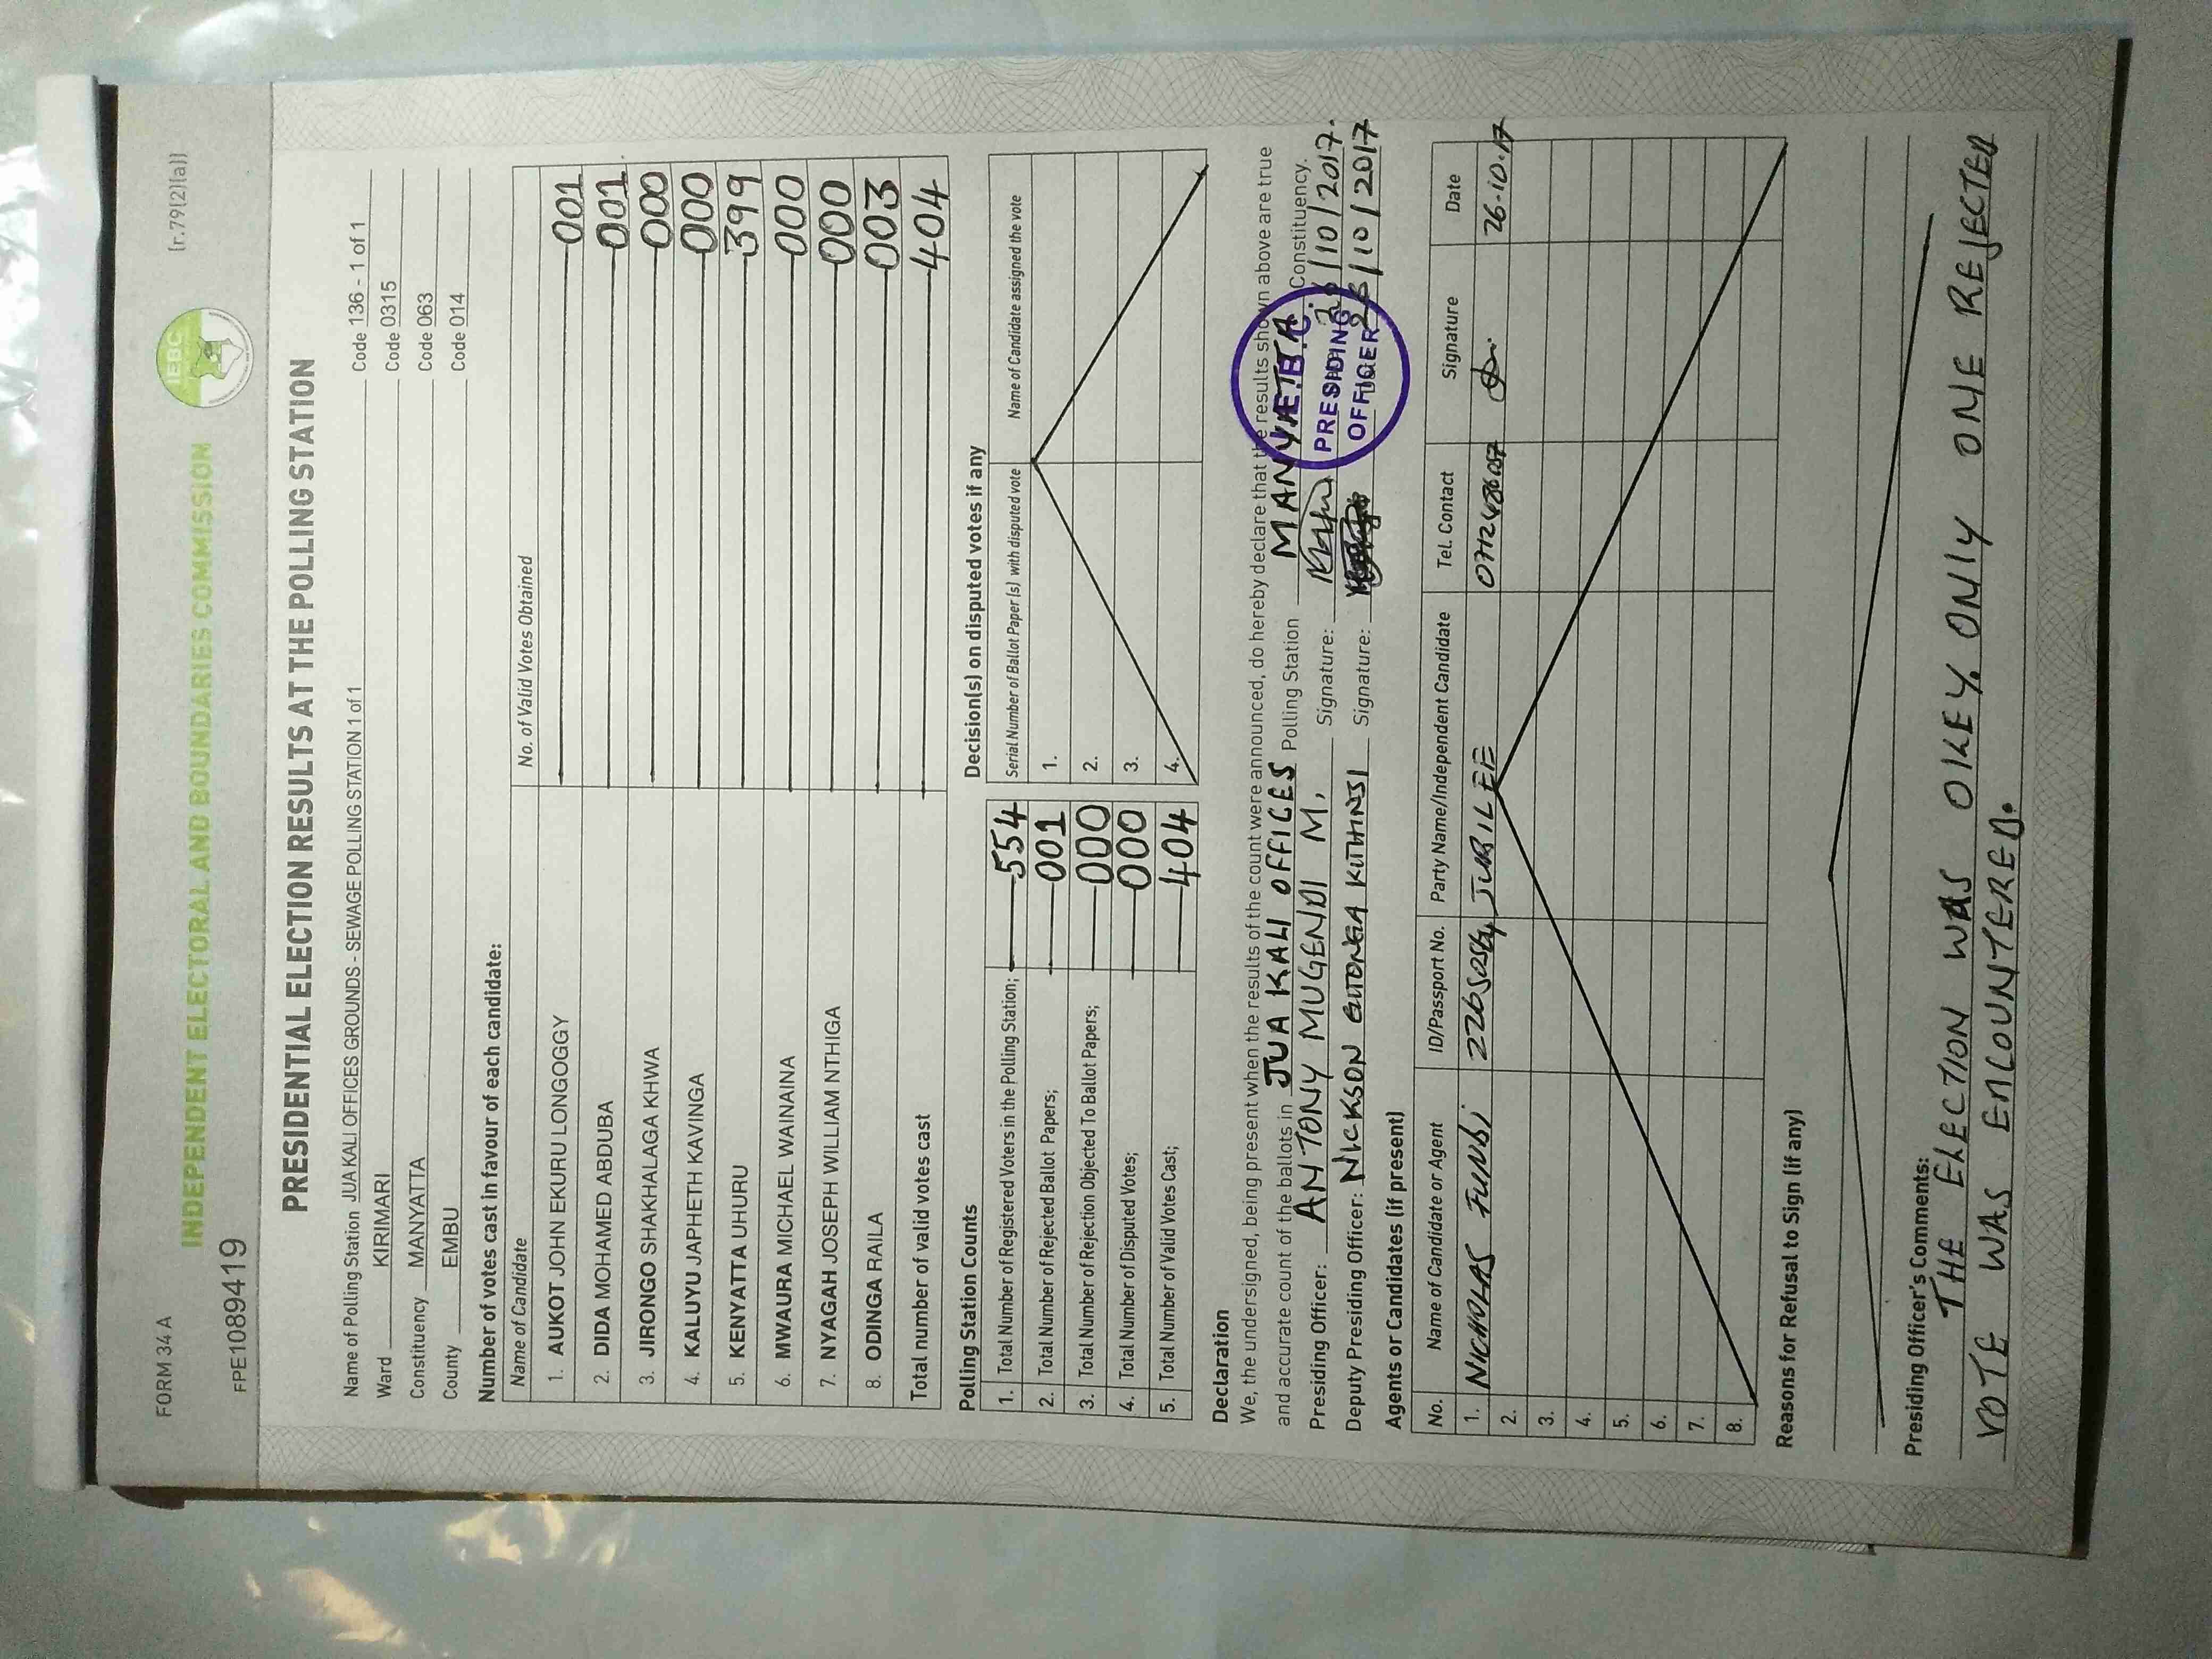 FORM 34 A
[r.79(2)(a)]
IEBC
INDEPENDENT ELECTORAL AND BOUNDARIES COMMISSION
FPE1089419
PRESIDENTIAL ELECTION RESULTS AT THE POLLING STATION
Name of Polling Station JUA KALI OFFICES GROUNDS - SEWAGE POLLING STATION 1 of 1 Code 136 - 1 of 1
Ward KIRIMARI Code 0315
Constituency MANYATTA Code 063
County EMBU Code 014
Number of votes cast in favour of each candidate:
Name of Candidate No. of Valid Votes Obtained
1. AUKOT JOHN EKURU LONGOGGY 001
2. DIDA MOHAMED ABDUBA 001
3. JIRONGO SHAKHALAGA KHWA 000
4. KALUYU JAPHETH KAVINGA 000
5. KENYATTA UHURU 399
6. MWAURA MICHAEL WAINAINA 000
7. NYAGAH JOSEPH WILLIAM NTHIGA 000
8. ODINGA RAILA 003
Total number of valid votes cast 404
Polling Station Counts
1. Total Number of Registered Voters in the Polling Station; 554
2. Total Number of Rejected Ballot Papers; 001
3. Total Number of Rejection Objected To Ballot Papers; 000
4. Total Number of Disputed Votes; 000
5. Total Number of Valid Votes Cast; 404
Decision(s) on disputed votes if any
Serial Number of Ballot Paper (s) with disputed vote Name of Candidate assigned the vote
1.
2.
3.
4.
Declaration
We, the undersigned, being present when the results of the count were announced, do hereby declare that the results shown above are true
and accurate count of the ballots in JUA KALI OFFICES Polling Station MANYATTA Constituency.
Presiding Officer: ANTONY MUGENDI M. Signature: 26/10/2017.
Deputy Presiding Officer: NICKSON GITONGA KITHINJI Signature: 26/10/2017
I.E.B.C.
PRESIDING
OFFICER
Agents or Candidates (if present)
No. Name of Candidate or Agent ID/Passport No. Party Name/Independent Candidate Tel. Contact Signature Date
1. NICHOLAS FUNDI JUBILEE 26.10.17
2.
3.
4.
5.
6.
7.
8.
Reasons for Refusal to Sign (if any)
Presiding Officer's Comments:
THE ELECTION WAS OKEY. ONLY ONE REJECTED
VOTE WAS ENCOUNTERED.